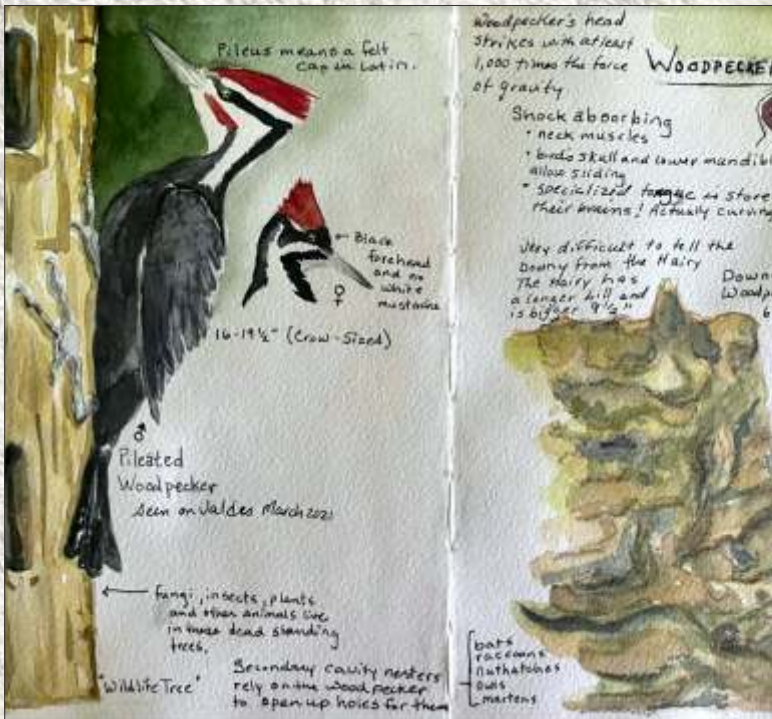 Pileus means a felt
cap in Latin.
← Black
forehead
and no
white
mustache
♀
16-19½" (Crow-Sized)
♂
Pileated
Woodpecker
seen on Valdes March 2021
← fungi, insects, plants
and other animals live
in these dead standing
trees.
"Wildlife Tree"
Secondary cavity nesters
rely on the woodpecker
to open up holes for them
bats
raccoons
nuthatches
owls
martens
Woodpecker's head
strikes with atleast
1,000 times the force
of gravity
WOODPECKE
Shock absorbing
• neck muscles
• birds skull and lower mandibl
allow sliding
• specialized tongue is store
their brains! Actually curving
Very difficult to tell the
Downy from the Hairy
The Hairy has
a longer bill and
is bigger 9½"
Down
Woodp
6